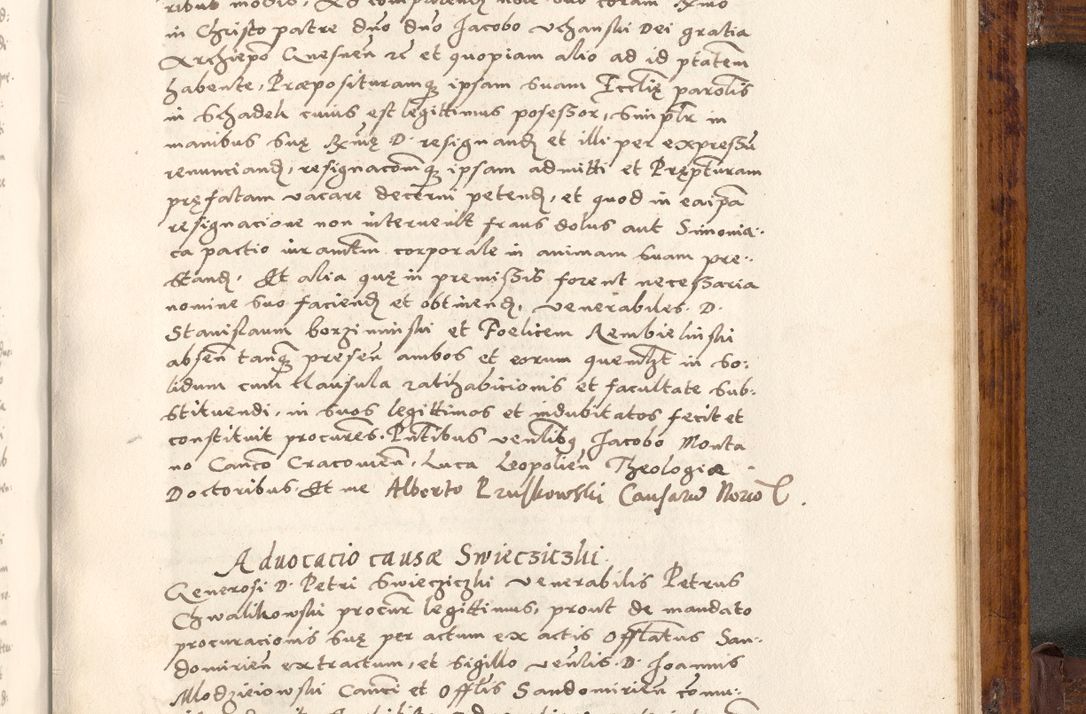 ribus modis, Ad comparendū noie suo coram Rmo
in Christo patre dno dno Jacobo Vchanski Dei gratia
Archiepo Gnesnen̄ rc et quopiam alio ad id ptatem
habente, Præposituramq̨ ipsam suam Eccliȩ parolis
in Schadek cuius est legittimus possessor, simplr in
manibus suȩ Rmȩ D. resignand̄ et illi per expressū
renunciand̄, resignacōmq̨ ipsam admitti et Prȩpturam
prȩfatam vacare decerni petend̄, et quod in eaipa
resignacione non interuenit fraus dolus aut Simonia:
ca pactio iuramtm corporale in animam suam pre:
standi, Et alia quȩ in premissis forent necessaria
nomine suo faciend̄ et obtinend̄, venerabiles D.
Stanislaum Borziminski et Foelicem Rembielinski
absen̄ tanq̨ presen̄ ambos et eorum quemlzt in so:
lidum cum clausula ratihabicionis et facultate sub:
stituendi, in suos legittimos et indubitatos fecit et
constituit procures. Pntibus venlibq Jacobo Monta
no Canco Cracouien̄, Luca Leopolien̄ Theologiæ
Doctoribus. Et me Alberto Pruskowski Causarū Norio
Aduocacio causæ Swiecziczki
Generosi D. Petri Swiecziczki venerabilis Petrus
Chwalikowski procur legittimus, prout de mandato
procuracionis suȩ per actum ex actis Offtatus San:
domirien̄ extractum, et sigillo venlis D. Joannis
Mlodzieiowski Canci et Offlis Sandomirien̄ commu: